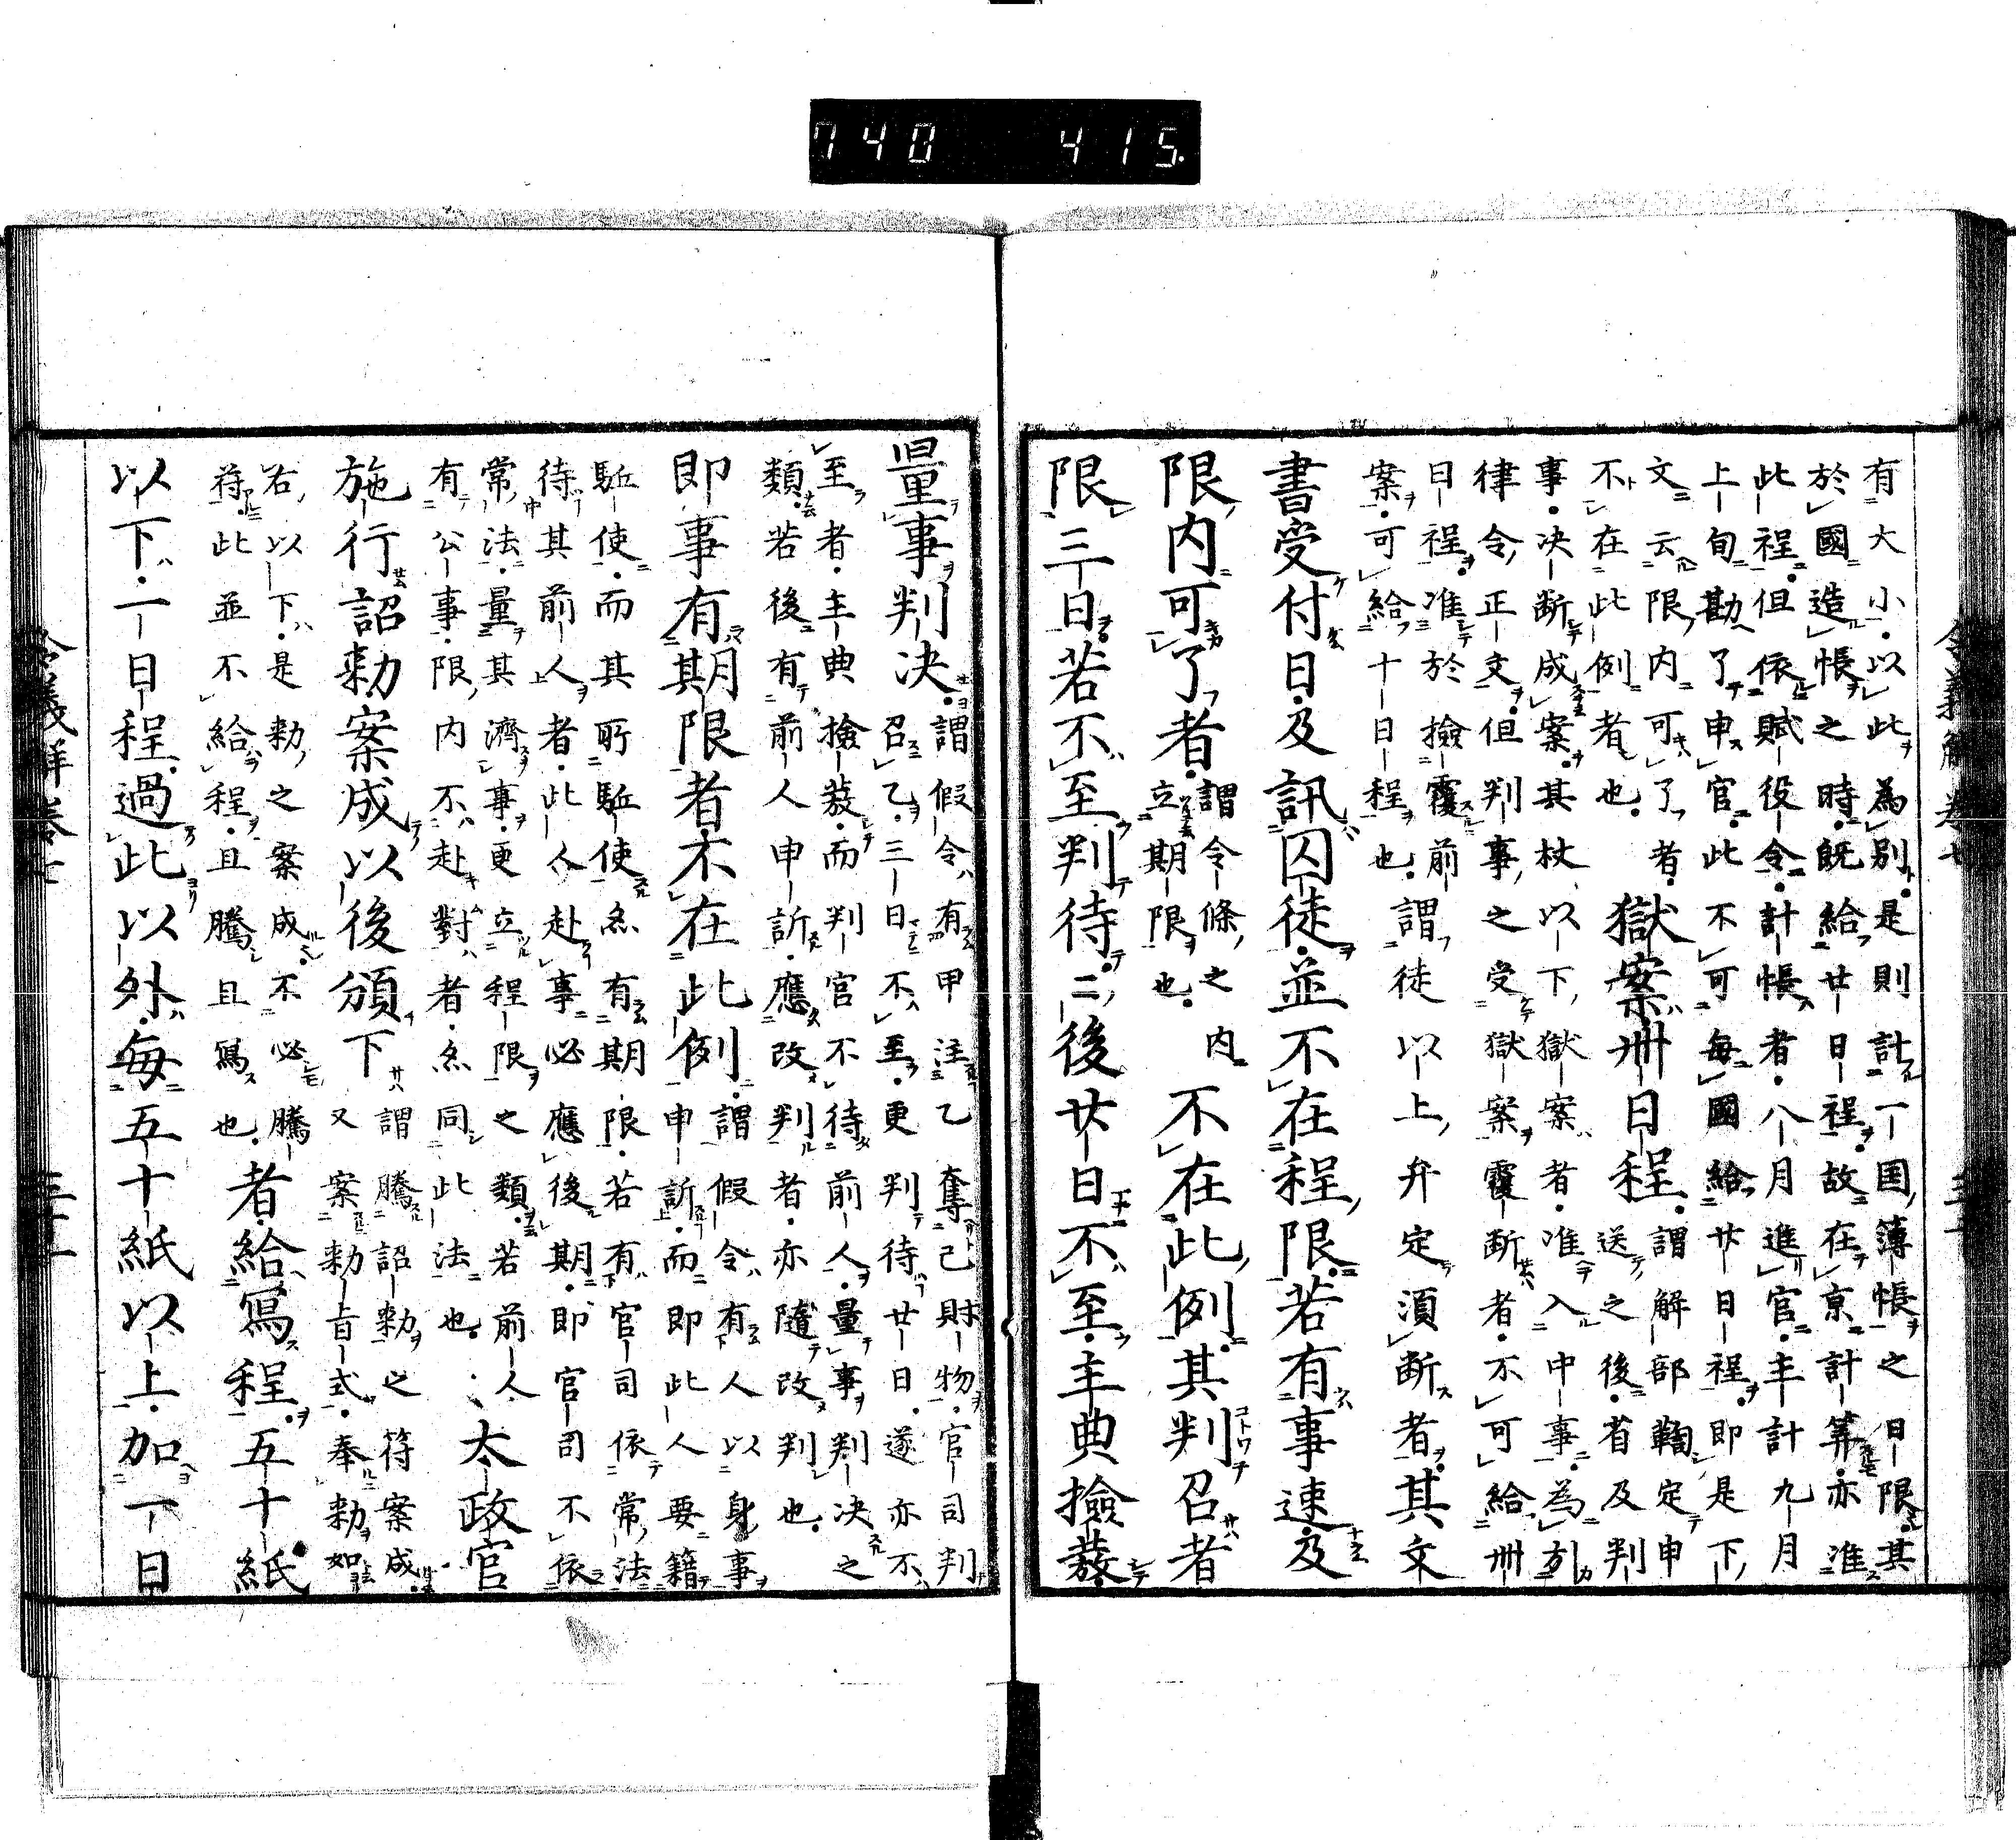 740 415.
有大小以此為別是則計一国簿帳之日限其
於國造帳之時既給廿日程故在京計筭亦准
此程但依賦役令計帳者八月進官主計九月
上旬勘了申官此不可每國給廿日程即是下
文云限内可了者
不在此例者也
獄案卅日程
謂解部鞫定申
送之後省及判
事决断成案其杖以下獄案者准入中事為列
律令正文但判事之受獄案覆断者不可給卅
日程准於撿覆前
案可給十日程也
謂徒以上弁定須断者其文
書受付日及訊囚徒並不在程限若有事速及
限内可了者
謂令條之内
立期限也
不在此例其判召者
限三日若不至判待二後廿日不至主典撿發
量事判决
謂假令有甲注乙奪己財物官司判
召乙三日不至更判待廿日遂亦不
至者主典撿發而判官不待前人量事判决之
類若後有前人申訴應改判者亦隨改判也
即事有期限者不在此例
謂假令有人以身事
申訴而即此人要籍
駈使而其所駈使亦有期限若有官司依常法
待其前人者此人赴事必應後期即官司不依
常法量其濟事更立程限之類若前人
有公事限内不赴對者亦同此法也
太政官
施行詔勅案成以後頒下
謂騰詔勅之符案成
又案勅旨式奉勅如
右以下是勅之案成不必騰
符此並不給程且騰且寫也
者給寫程五十紙
以下一日程過此以外每五十紙以上加一日